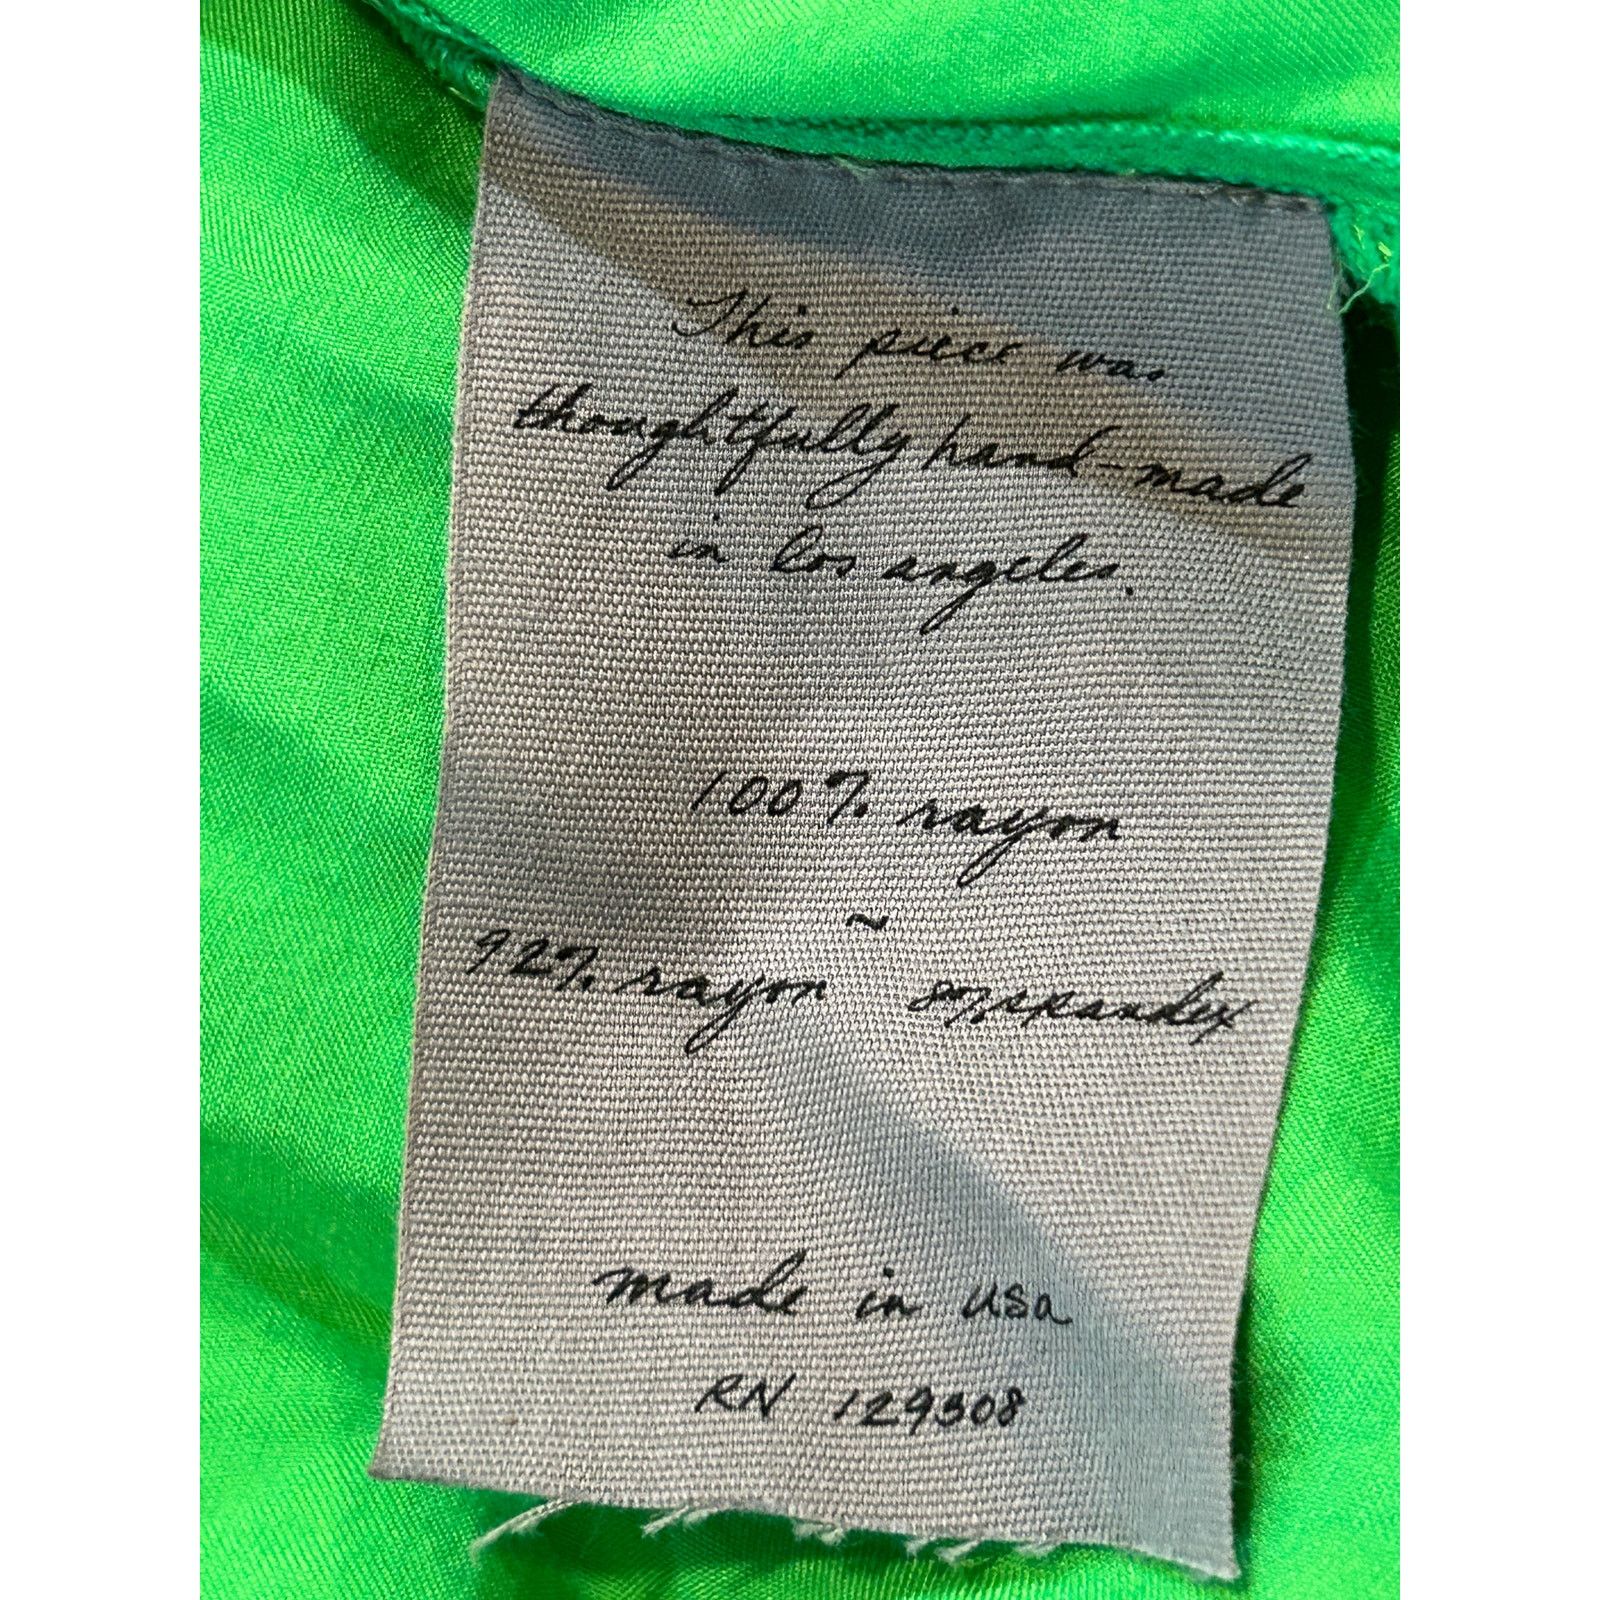 This piece was
thoughtfully hand-made
in los angeles.
100% rayon
~
92% rayon 8% spandex
made in usa
RN 129308